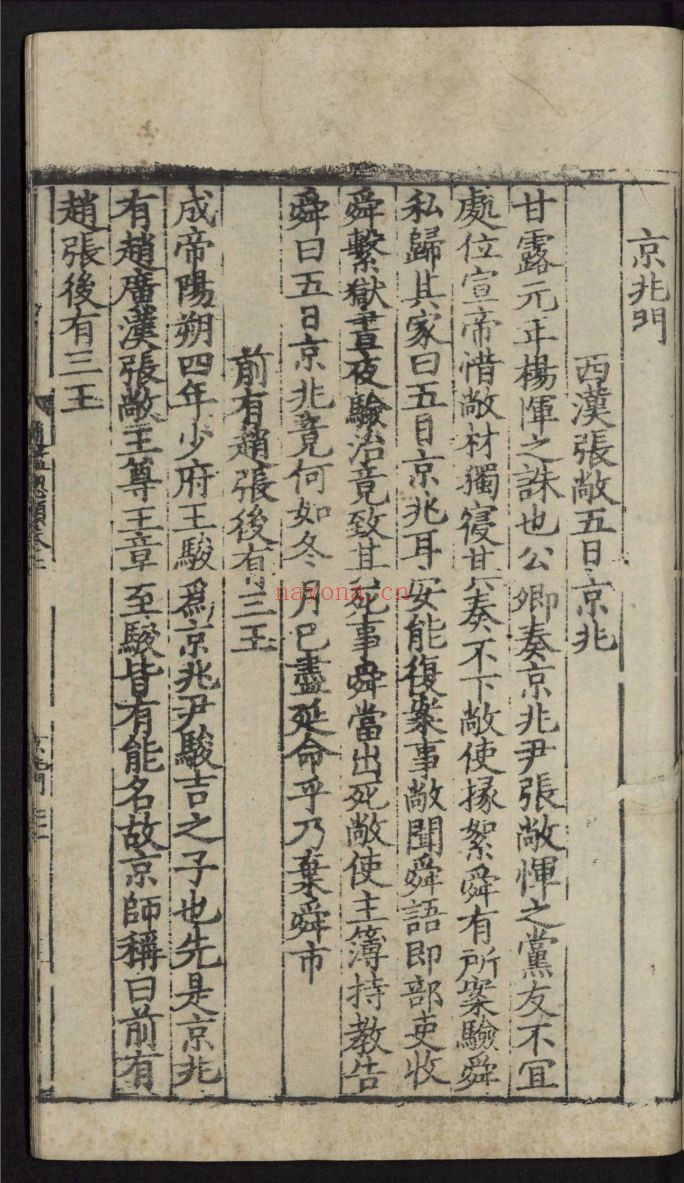 京兆門
西漢張敞五日京兆
甘露元年楊惲之誅也公卿奏京兆尹張敞惲之黨友不宜
處位宣帝惜敞材獨寢其奏不下敞使掾絮舜有所案驗舜
私歸其家曰五日京兆耳安能復案事敞聞舜語即部吏收
舜繫獄晝夜驗治竟致其死事舜當出死敞使主簿持教告
舜曰五日京兆竟何如冬月已盡延命乎乃棄舜市
前有趙張後有三王
成帝陽朔四年少府王駿爲京兆尹駿吉之子也先是京兆
有趙廣漢張敞王尊王章至駿皆有能名故京師稱曰前有
趙張後有三王
通鑑總類卷十
京兆門
nayona.cn